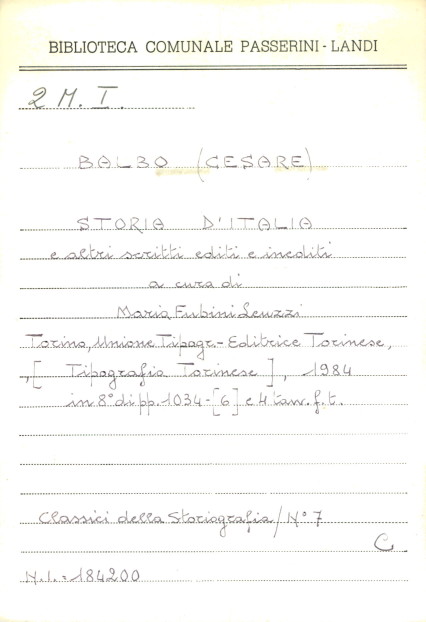 BIBLIOTECA COMUNALE PASSERINI - LANDI
2 M. I.
BALBO (CESARE)
STORIA D'ITALIA
e altri scritti editi e inediti
a cura di
Maria Fubini Leuzzi
Torino, Unione Tipogr.- Editrice Torinese,
,[ Tipografia Torinese ], 1984
in 8° di pp. 1034-[6] e 4 tav. f. t.
Classici della Storiografia/N° 7
C
N.I.:184200